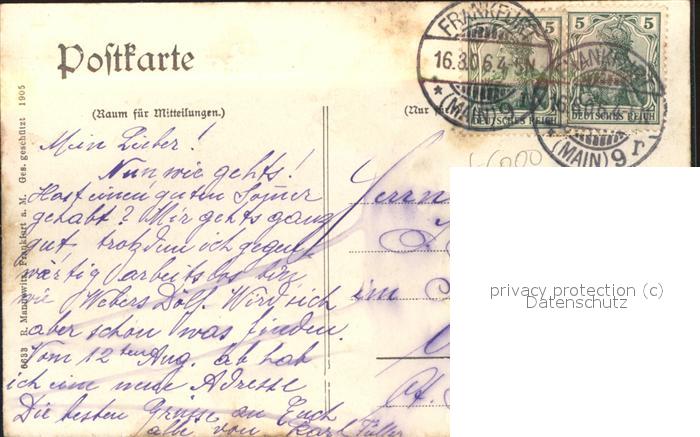 Postkarte
(Raum für Mitteilungen.)
(Nur für
FRANKFURT
16.8.06.4-5N
* (MAIN) 9
FRANKFURT
16.8.06.
(MAIN) 9
5 5
5
DEUTSCHES REICH
DEUTSCHES REICH
6633 R. Mankewitz, Frankfurt a. M. Ges. geschützt 1905
Mein Lieber!
Nun wie gehts!
Hast einen guten Somer
gehabt? Mir gehts ganz
gut, trotzdem ich gegen-
wärtig arbeitslos bin,
wie Webers Dölf. Wird sich
aber schon was finden.
Vom 12ten Aug. ab hab
ich eine neue Adresse
Die besten Grüsse an Euch
alle von Karl
Herrn
im
privacy protection (c)
Datenschutz